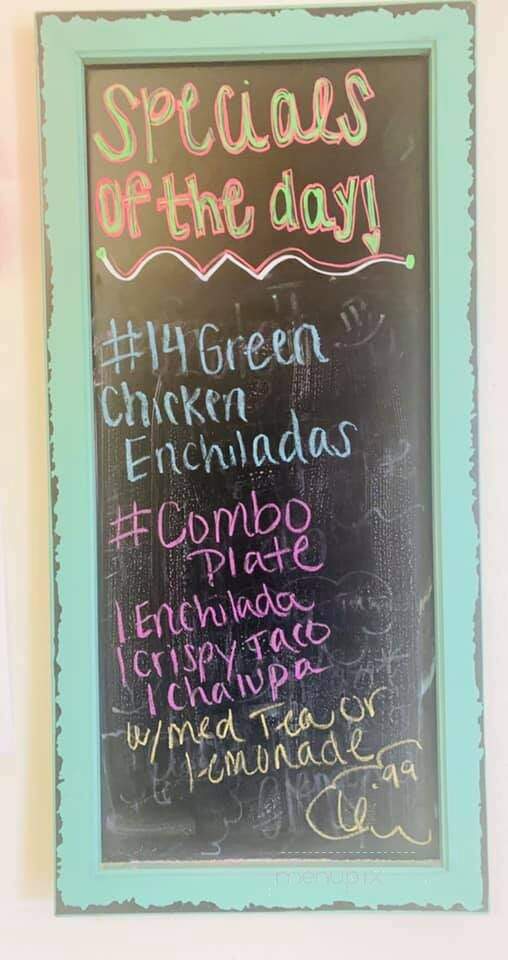 Specials
of the day!
#14 Green
Chicken
Enchiladas
#Combo
Plate
1 Enchilada
1 Crispy Taco
1 Chalupa
w/med Tea or
Lemonade
.99
menupix